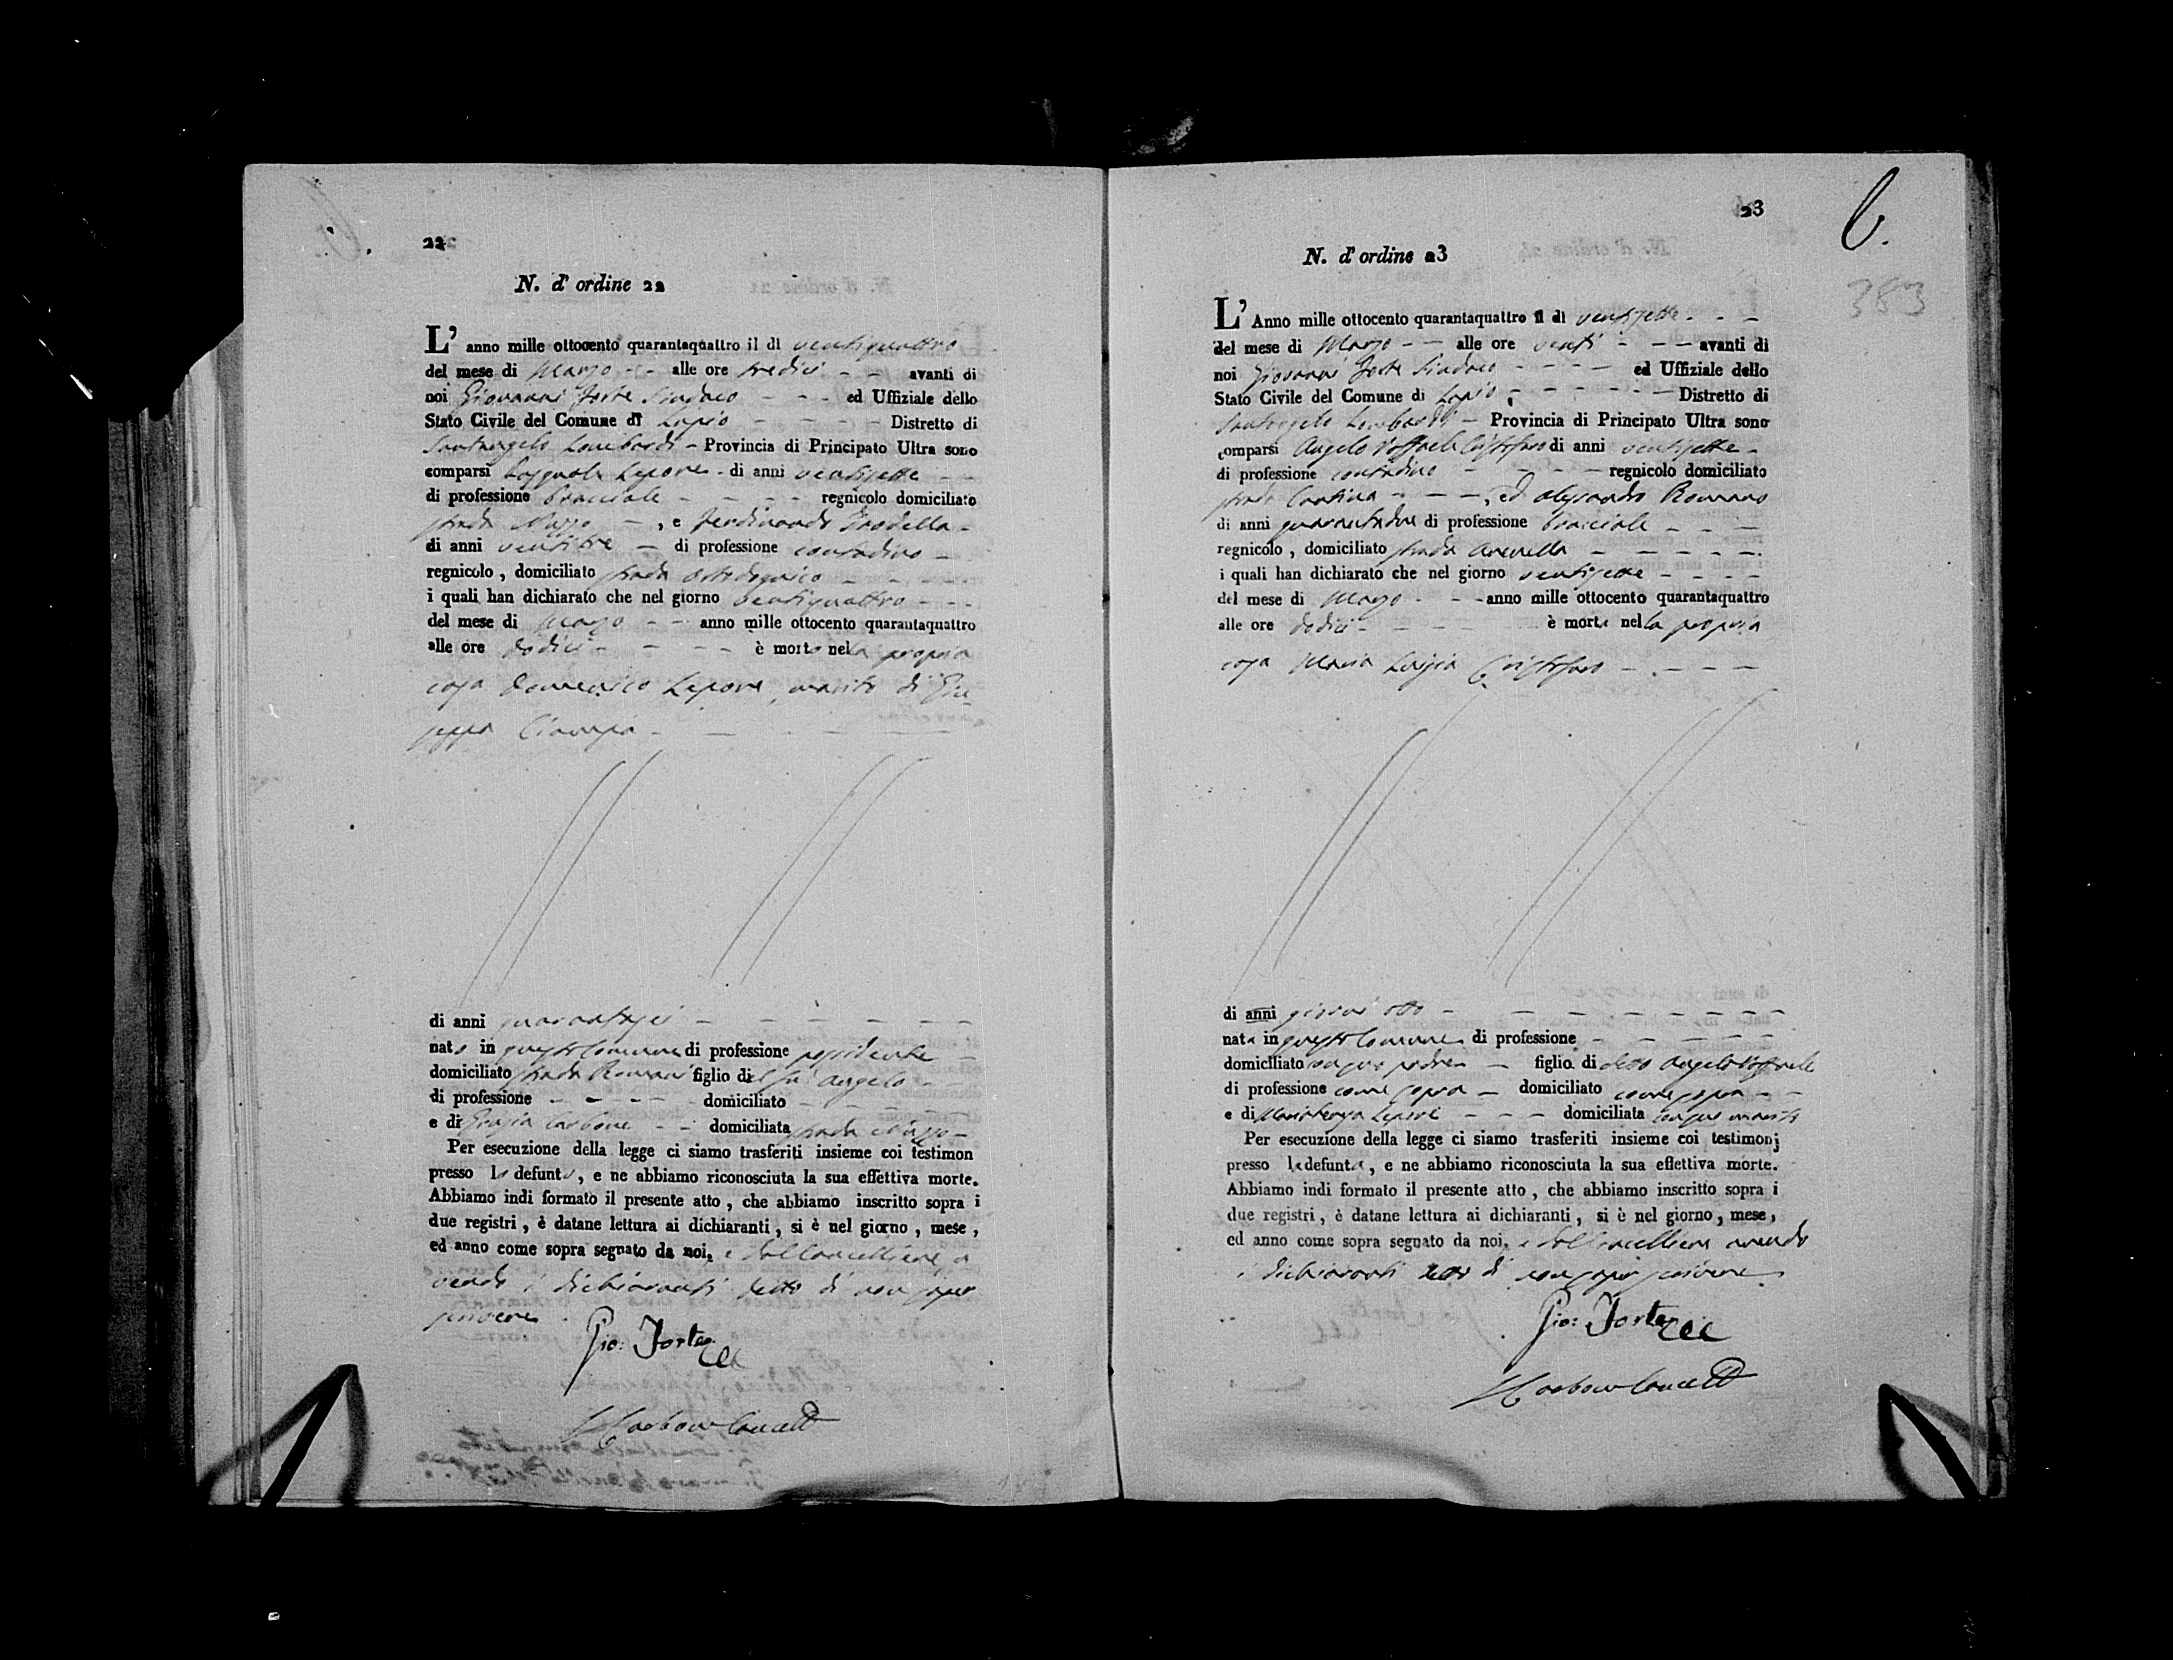 22
N. d' ordine 22
L' anno mille ottocento quarantaquattro il dì ventiquattro
del mese di Marzo - - alle ore tredici - - avanti di
noi Giovanni Forte Sindaco - - - ed Uffiziale dello
Stato Civile del Comune di Lapio - - - - Distretto di
Santangelo Lombardi - Provincia di Principato Ultra sono
comparsi Pasquale Lepore - di anni ventisette - -
di professione bracciale - - - - regnicolo domiciliato
strada - , e Ferdinando -
di anni ventitre - di professione contadino -
regnicolo , domiciliato strada - - -
i quali han dichiarato che nel giorno ventiquattro - - -
del mese di Marzo - - anno mille ottocento quarantaquattro
alle ore dodici - - - - è morto nella propria
casa Domenico Lepore, marito di Giu-
seppa Ciampa - - - - -
di anni quarantasei - - - - - - -
nato in questo Comune di professione possidente -
domiciliato strada Romani figlio del fu Angelo -
di professione - - - - - domiciliato - - -
e di Grazia Carbone - - domiciliata strada -
Per esecuzione della legge ci siamo trasferiti insieme coi testimon
presso lo defunto, e ne abbiamo riconosciuta la sua effettiva morte.
Abbiamo indi formato il presente atto , che abbiamo inscritto sopra i
due registri , è datane lettura ai dichiaranti , si è nel giorno , mese ,
ed anno come sopra segnato da noi, e dal Cancelliere, a
vendo i dichiaranti detto di non saper
scrivere.
Gio: Forte
Carbone Cancell
23
6.
383
N. d' ordine 23
L' Anno mille ottocento quarantaquattro il di ventisette - - -
del mese di Marzo - - alle ore venti - - - avanti di
noi Giovanni Forte Sindaco - - - - ed Uffiziale dello
Stato Civile del Comune di Lapio, - - - - - Distretto di
Santangelo Lombardi - Provincia di Principato Ultra sono
comparsi Angelo Raffaele Cristofaro di anni ventisette -
di professione contadino - - - - regnicolo domiciliato
strada Cantina - - - , ed Alesandro Romano
di anni quarantadue di professione bracciale - - -
regnicolo , domiciliato strada Arenella - - - - -.
i quali han dichiarato che nel giorno ventisette - - - -
del mese di Marzo - - - anno mille ottocento quarantaquattro
alle ore dodici - - - - è morta nella propria
casa Maria Luigia Cristofaro - - - -
di anni giorni otto - - - - - - - - -
nata in questo Comune di professione - - - - -
domiciliato con suo padre - figlia di detto Angelo Raffaele
di professione come sopra - domiciliato come sopra - -
e di Mariateresa Lepore - - - domiciliata con suo marito
Per esecuzione della legge ci siamo trasferiti insieme coi testimonj
presso la defunta , e ne abbiamo riconosciuta la sua effettiva morte.
Abbiamo indi formato il presente atto , che abbiamo inscritto sopra i
due registri , è datane lettura ai dichiaranti , si è nel giorno , mese ,
ed anno come sopra segnato da noi, e dal Cancelliere avendo
i dichiaranti detto di non saper scrivere.
Gio: Forte
Carbone Cancell